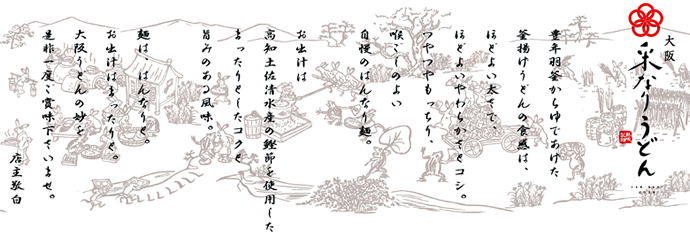 大阪
采なりうどん
豊年羽釜からゆであげた
釜揚げうどんの食感は、
ほどよい太さで、
ほどよいやわらかさとコシ。
つやつやもっちり、
喉ごしのよい
自慢のはんなり麺。
お出汁は
高知土佐清水産の鰹節を使用した
まったりとしたコクと
旨みのある風味。
麺は、はんなりと。
お出汁はまったりと。
大阪うどんの妙を
是非一度ご賞味下さいませ。
店主敬白